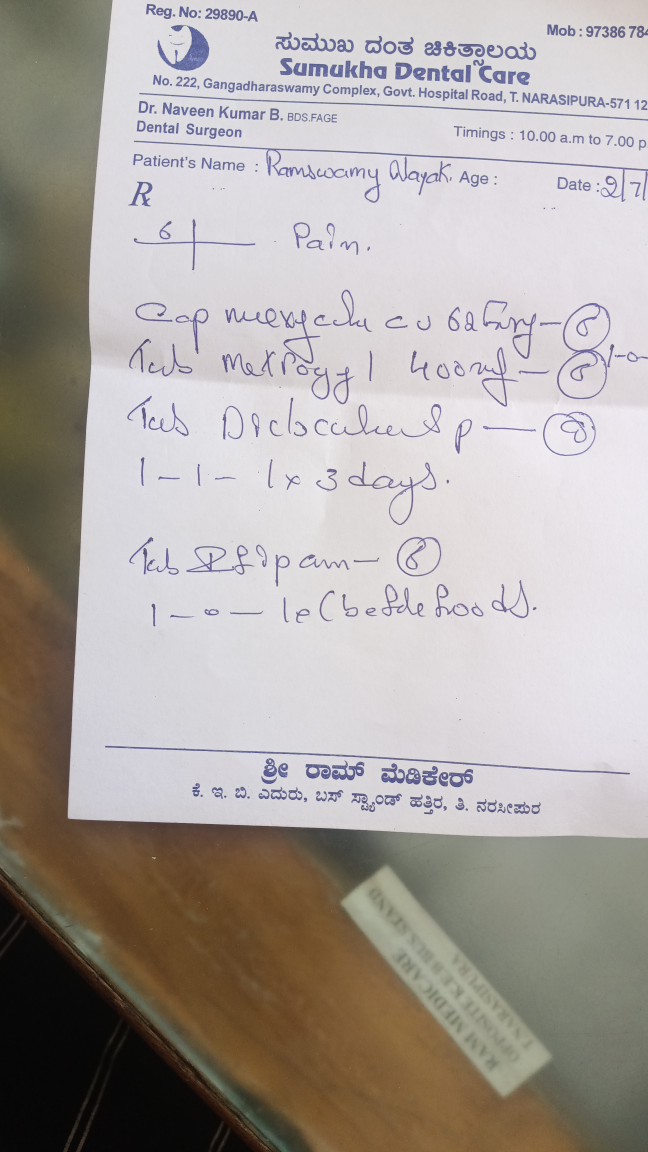 Reg. No: 29890-A
Mob : 97386 784
ಸುಮುಖ ದಂತ ಚಿಕಿತ್ಸಾಲಯ
Sumukha Dental Care
No. 222, Gangadharaswamy Complex, Govt. Hospital Road, T. NARASIPURA-571 12
Dr. Naveen Kumar B. BDS.FAGE
Dental Surgeon
Timings : 10.00 a.m to 7.00 p
Patient's Name : Ramswamy Nayak. Age : Date : 2/7/
R
6 Pain.
Cap cv 625mg - 6
Tab Metrogyl 400mg - 6 1-0-
Tab P - 8
1 - 1 - 1 x 3 days.
Tab - 6
1 - 0 - 1
ಶ್ರೀ ರಾಮ್ ಮೆಡಿಕೇರ್
ಕೆ. ಇ. ಬಿ. ಎದುರು, ಬಸ್ ಸ್ಟ್ಯಾಂಡ್ ಹತ್ತಿರ, ತಿ. ನರಸೀಪುರ
RAM MEDICARE
OPPOSITE K E B BUS STAND
T NARASIPURA